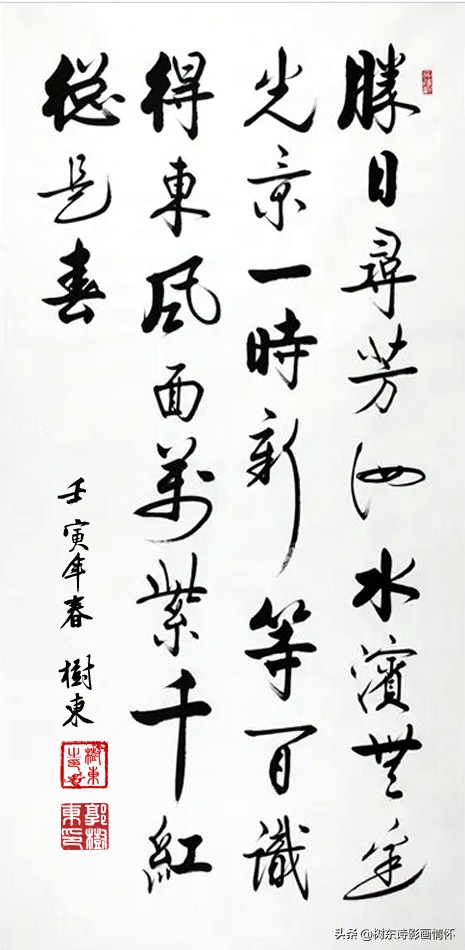 勝日尋芳泗水濱無邊
光景一時新等閒識
得東風面萬紫千紅
總是春
壬寅年春 樹東
郭樹東印
头条 @树东诗影画情怀